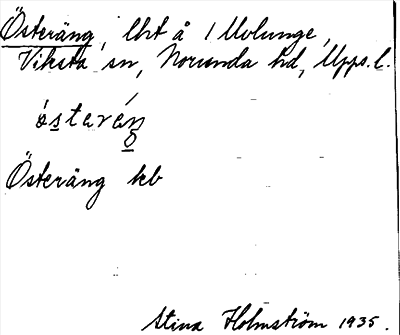 Österäng, lht å 1 Molunge,
Viksta sn, Norunda hd, Upps.l.
österäŋ
Österäng kb
Stina Holmström 1935.